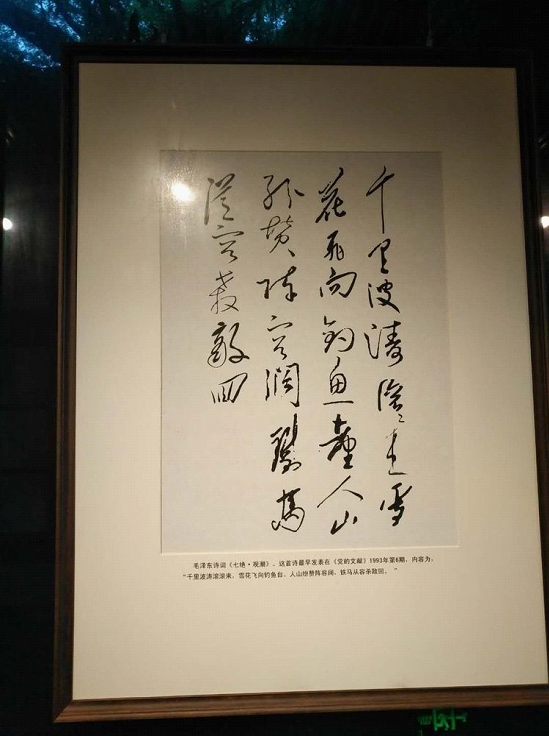 千里波涛滚滚来雪
花飞向钓鱼臺人山
纷赞阵容阔鐵馬
從容殺敵回
毛泽东诗词《七绝·观潮》。这首诗最早发表在《党的文献》1993年第6期,内容为:
“千里波涛滚滚来,雪花飞向钓鱼台。人山纷赞阵容阔,铁马从容杀敌回。”